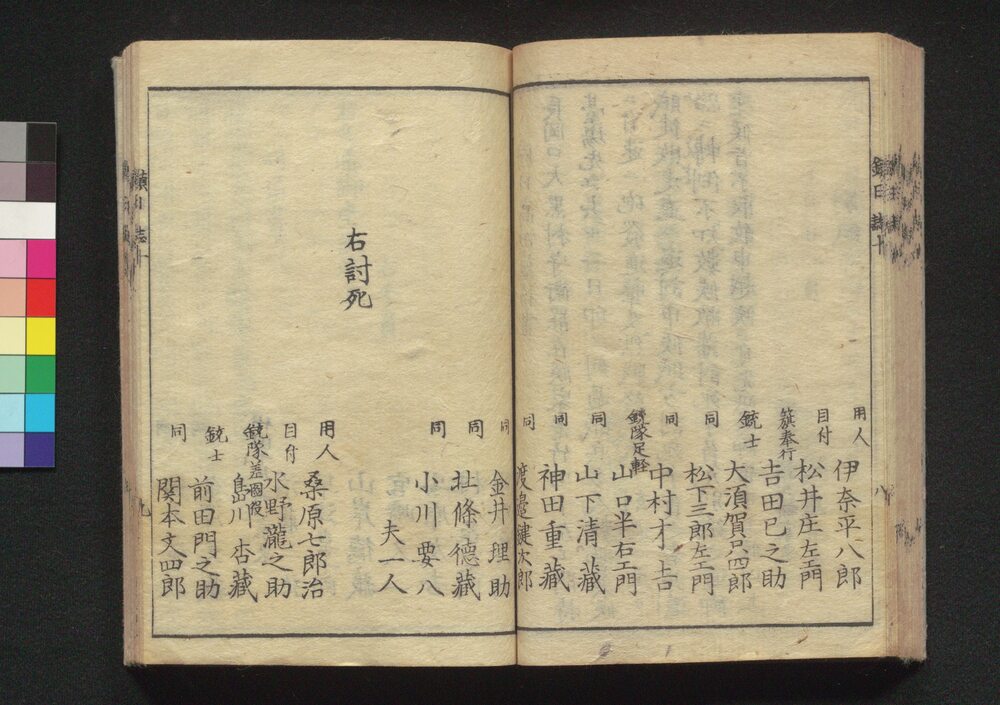 用人 伊奈平八郎
目付 松井庄左エ門
籏奉行 吉田巳之助
銃士 大須賀只四郎
同 松下三郎左エ門
同 中村才吉
銃隊足軽 山口半右エ門
同 山下清藏
同 神田重藏
同 渡邉健次郎
同 金井理助
同 北條德藏
同 小川要八
夫一人
右討死
用人 桑原七郎治
目付 水野瀧之助
銃隊差圖役 島川杏藏
銃士 前田門之助
同 関本文四郎